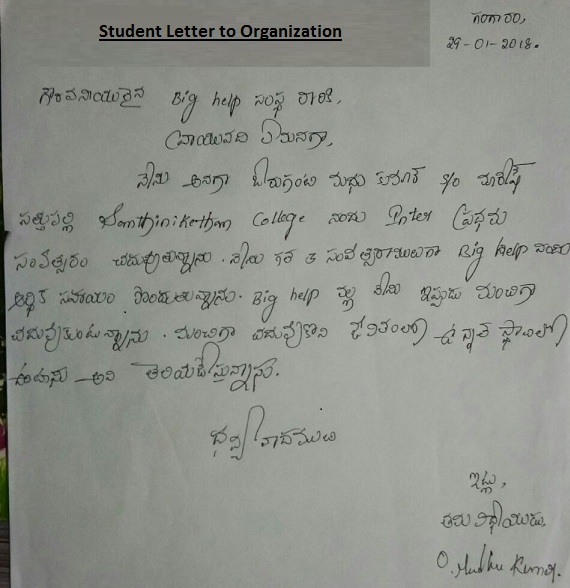 Student Letter to Organization
గంగారం,
29-01-2018.
గౌరవనీయులైన Big help సంస్థ వారికి,
వ్రాయునది ఏమనగా,
నేను అనగా ఓరుగంటి మధు కుమార్ S/o
సత్తుపల్లి Santhinikethan College నందు Inter ప్రథమ
సంవత్సరం చదువుతున్నాను. నేను గత 3 సంవత్సరాలుగా Big Help నుండి
ఆర్థిక సహాయం పొందుతున్నాను. Big help వల్ల నేను ఇప్పుడు మంచిగా
చదువుకుంటున్నాను. మంచిగా చదువుకొని జీవితంలో ఉన్నత స్థాయిలో
ఉంటాను అని తెలియజేస్తున్నాను.
ధన్యవాదములు
ఇట్లు,
తమ విధేయుడు,
O. Madhu Kumar.